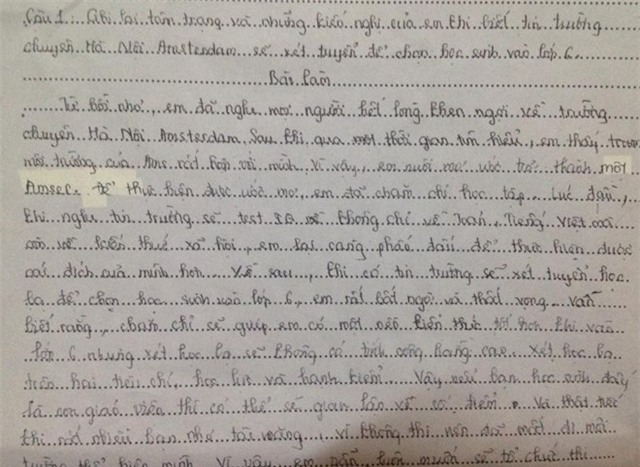 Câu 1: Ghi lại tâm trạng và những kiến nghị của em khi biết tin trường
chuyên Hà Nội Amsterdam sẽ xét tuyển để chọn học sinh vào lớp 6.
Bài làm
Từ bé, em đã nghe mọi người hết lòng khen ngợi về trường
chuyên Hà Nội Amsterdam. Sau khi qua một thời gian tìm hiểu, em thấy
môi trường của Ams rất hợp với mình. Vì vậy, em nuôi mơ ước trở thành một
Amser. Để thực hiện được ước mơ, em đã chăm chỉ học tập. Lúc đầu,
khi nghe tin trường sẽ test IQ, không chỉ về Toán, Tiếng Việt mà
còn về kiến thức xã hội, em lại càng phấn đấu để thực hiện được
mục đích của mình hơn. Về sau, khi có tin trường sẽ xét tuyển học
bạ để chọn học sinh vào lớp 6, em rất bất ngờ và thất vọng. Vẫn
biết rằng, chăm chỉ sẽ giúp em có một nền kiến thức tốt hơn khi vào
lớp 6 nhưng xét học bạ sẽ không có tính công bằng cao. Xét học bạ
trên hai tiêu chí, học lực và hạnh kiểm. Vậy nếu bạn học sinh đấy
là con giáo viên thì có thể sẽ gian lận về số điểm. Và thật tiếc
khi rất nhiều bạn như tài năng, vì không thi nên đã mất đi
trường thể hiện mình. Vì vậy, em muốn sẽ tổ chức thi